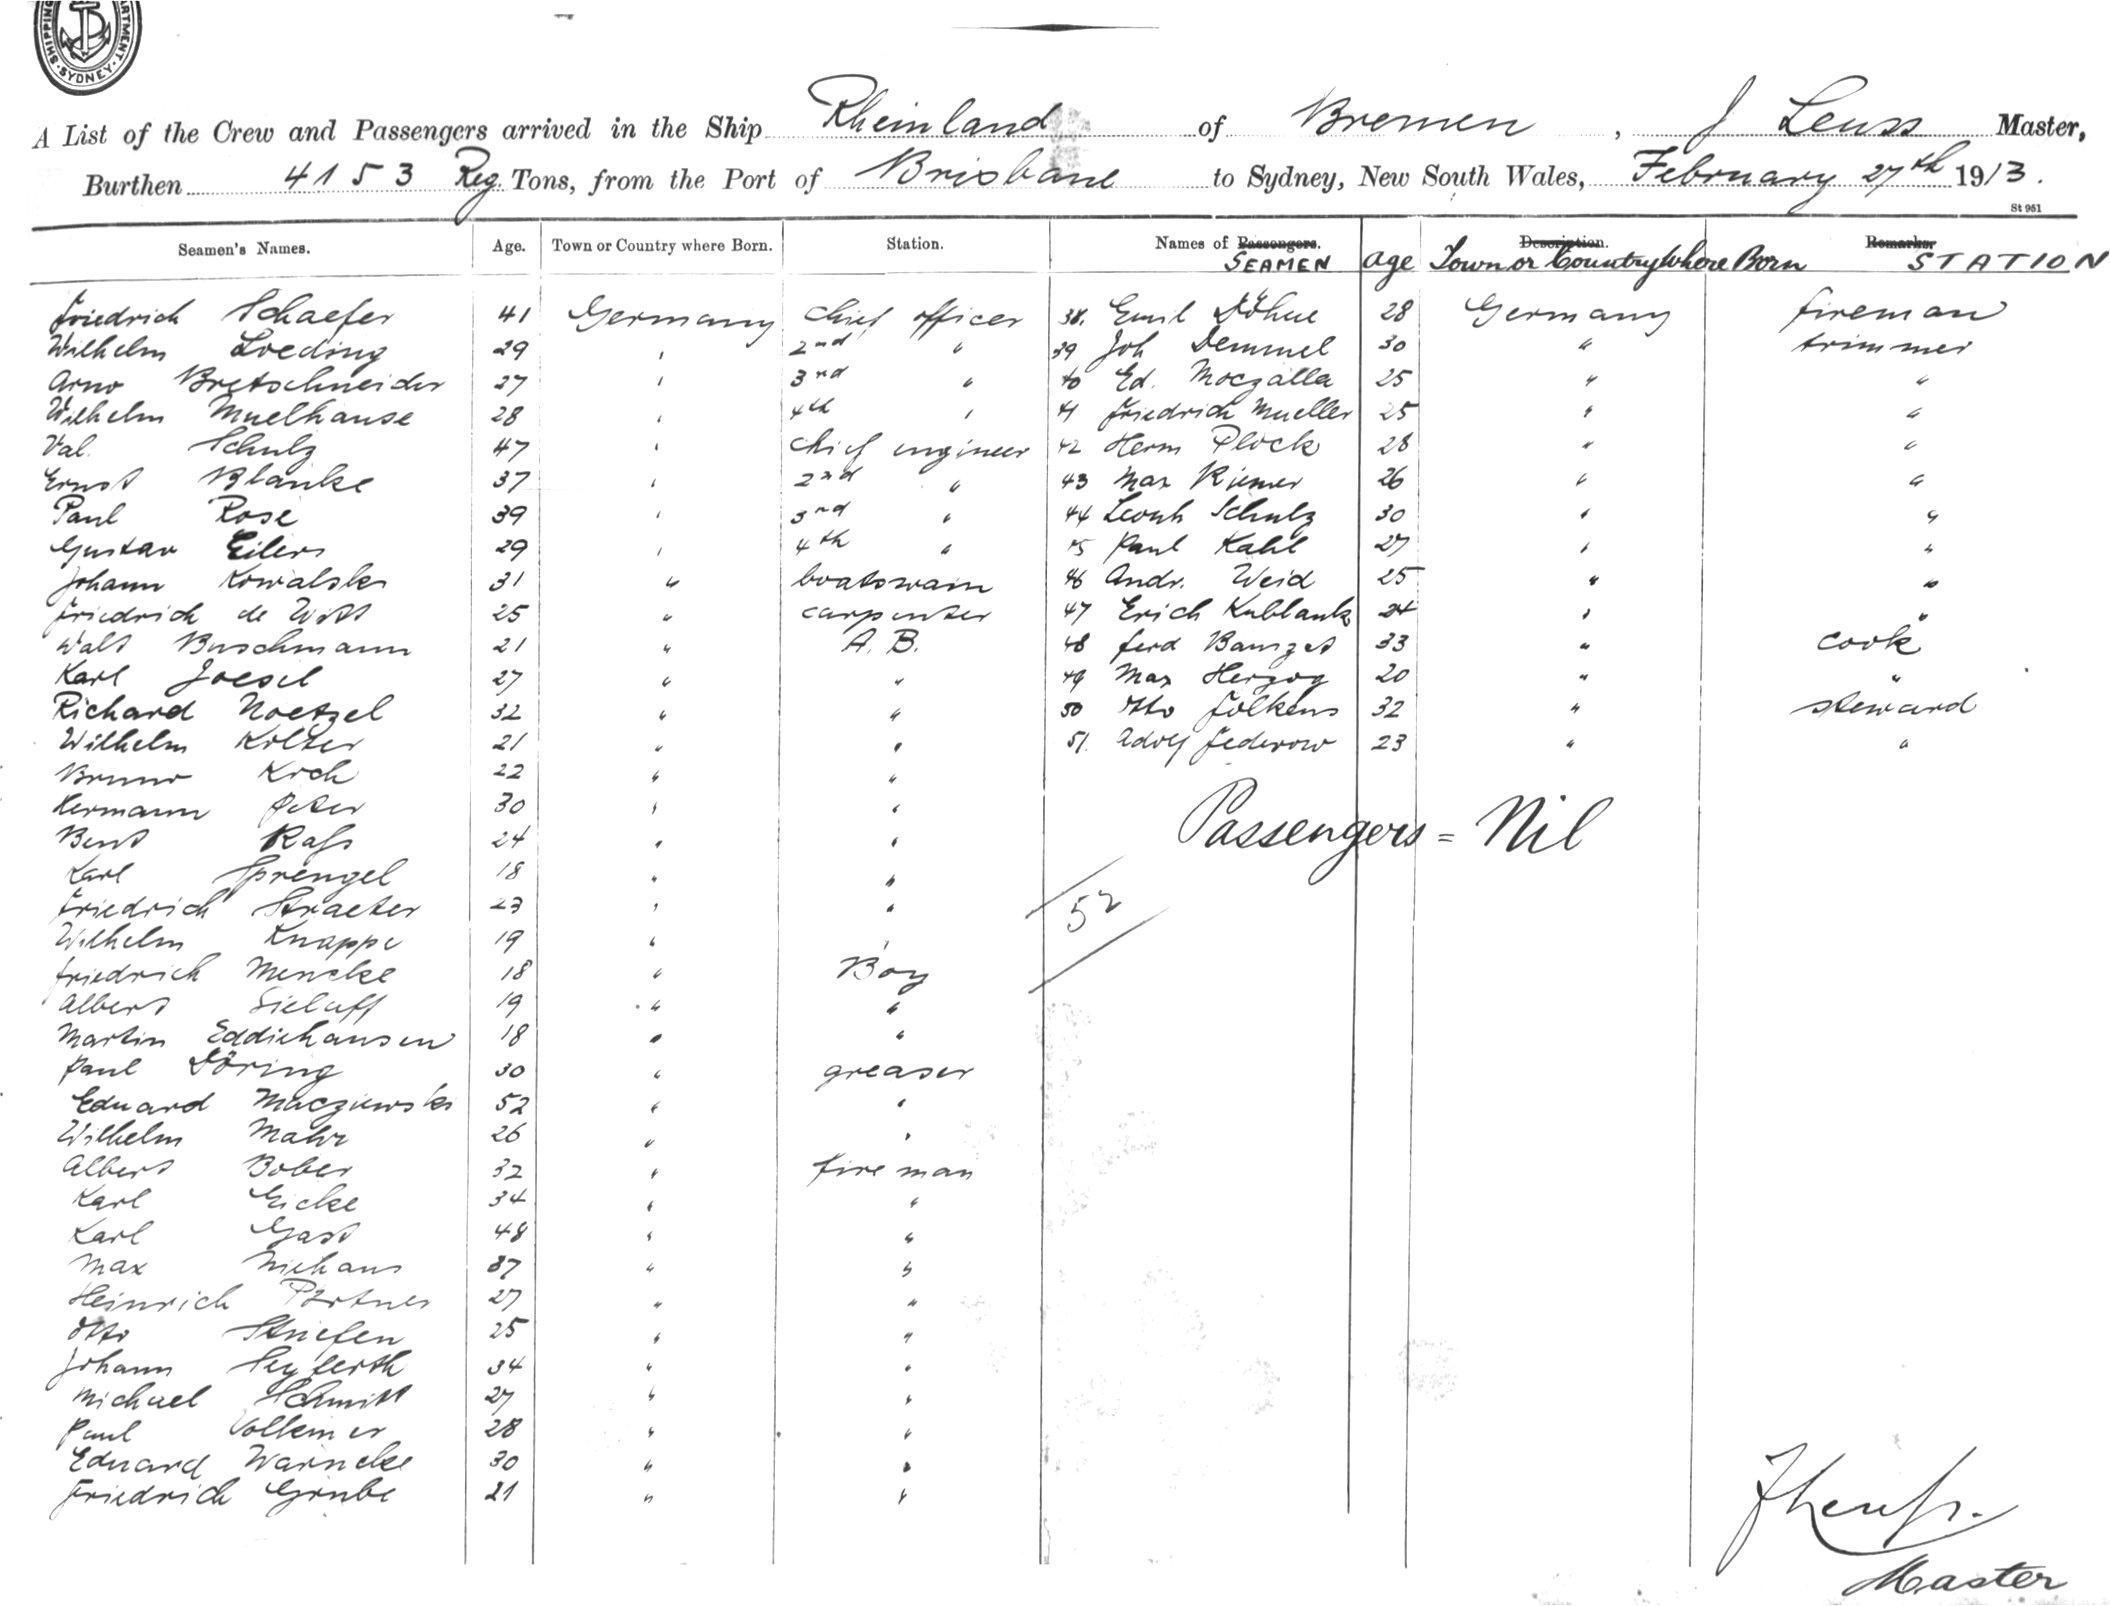 SHIPPING DEPARTMENT. SYDNEY.
A List of the Crew and Passengers arrived in the Ship Rheinland of Bremen, J Leuss Master,
Burthen 4153 Reg. Tons, from the Port of Brisbane to Sydney, New South Wales, February 27th 1913.
St 951
Seamen's Names. Age. Town or Country where Born. Station. Names of Passengers. SEAMEN age Description. Town or Country Where Born Remarks STATION
Friedrich Schaefer 41 Germany chief officer 38. Emil Döhne 28 Germany fireman
Wilhelm Loeding 29 " 2nd " 39 Joh Demmel 30 " trimmer
Arno Bretschneider 27 " 3rd " 40 Ed. Moczalla 25 " "
Wilhelm Muelhause 28 " 4th " 41 Friedrich Mueller 25 " "
Val. Schulz 47 " chief engineer 42 Herm Plock 28 " "
Ernst Blanke 37 " 2nd " 43 Max Riemer 26 " "
Paul Rose 39 " 3rd " 44 Leonh Schulz 30 " "
Gustav Eilers 29 " 4th " 45 Paul Kahl 27 " "
Johann Kowalski 31 " boatswain 46 Andr. Weid 25 " "
Friedrich de Witt 25 " carpenter 47 Erich Kublank 24 " "
Walt Buschmann 21 " A. B. 48 Ferd 33 " cook
Karl Joesel 27 " " 49 Max Herzog 20 " "
Richard Noetzel 32 " " 50 Otto Folkens 32 " steward
Wilhelm Kolter 21 " " 51. Adolf Federow 23 " "
Bruno Koch 22 " "
Hermann Peter 30 " "
Passengers = Nil
Bent 24 " "
Karl Sprengel 18 " "
Friedrich Straeter 23 " "
52
Wilhelm Knappe 19 " "
Friedrich Mencke 18 " Boy
Albert Sielaff 19 " "
Martin Eddiehausen 18 " "
Paul Döring 30 " greaser
Eduard Macziewski 52 " "
Wilhelm Mahr 26 " "
Albert Bober 32 " fireman
Karl Eicke 34 " "
Karl Gast 48 " "
Max Niehaus 37 " "
Heinrich Portner 27 " "
Otto Striefen 25 " "
Johann Seyferth 34 " "
Michael Schmitt 27 " "
Paul Volkmer 28 " "
Eduard Warncke 30 " "
Friedrich Grube 21 " "
J Leuss.
Master